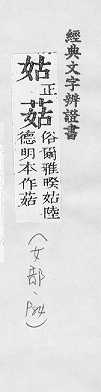 經典文字辨證書
姑正
菇俗爾雅暌姑陸
德明本作菇
(女部、P24)